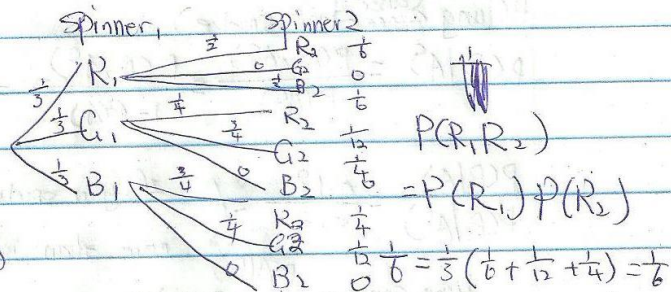 Spinner 1 Spinner 2
1/3 R₁ 1/2 R₂ 1/6
0 G₂ 0
1/2 B₂ 1/6
1/3 G₁ 1/4 R₂ 1/12
3/4 G₂ 1/4
0 B₂ 0
1/3 B₁ 3/4 R₂ 1/4
1/4 G₂ 1/12
0 B₂ 0
P(R₁R₂)
=P(R₁)P(R₂)
1/6 = 1/3(1/6 + 1/12 + 1/4) = 1/6